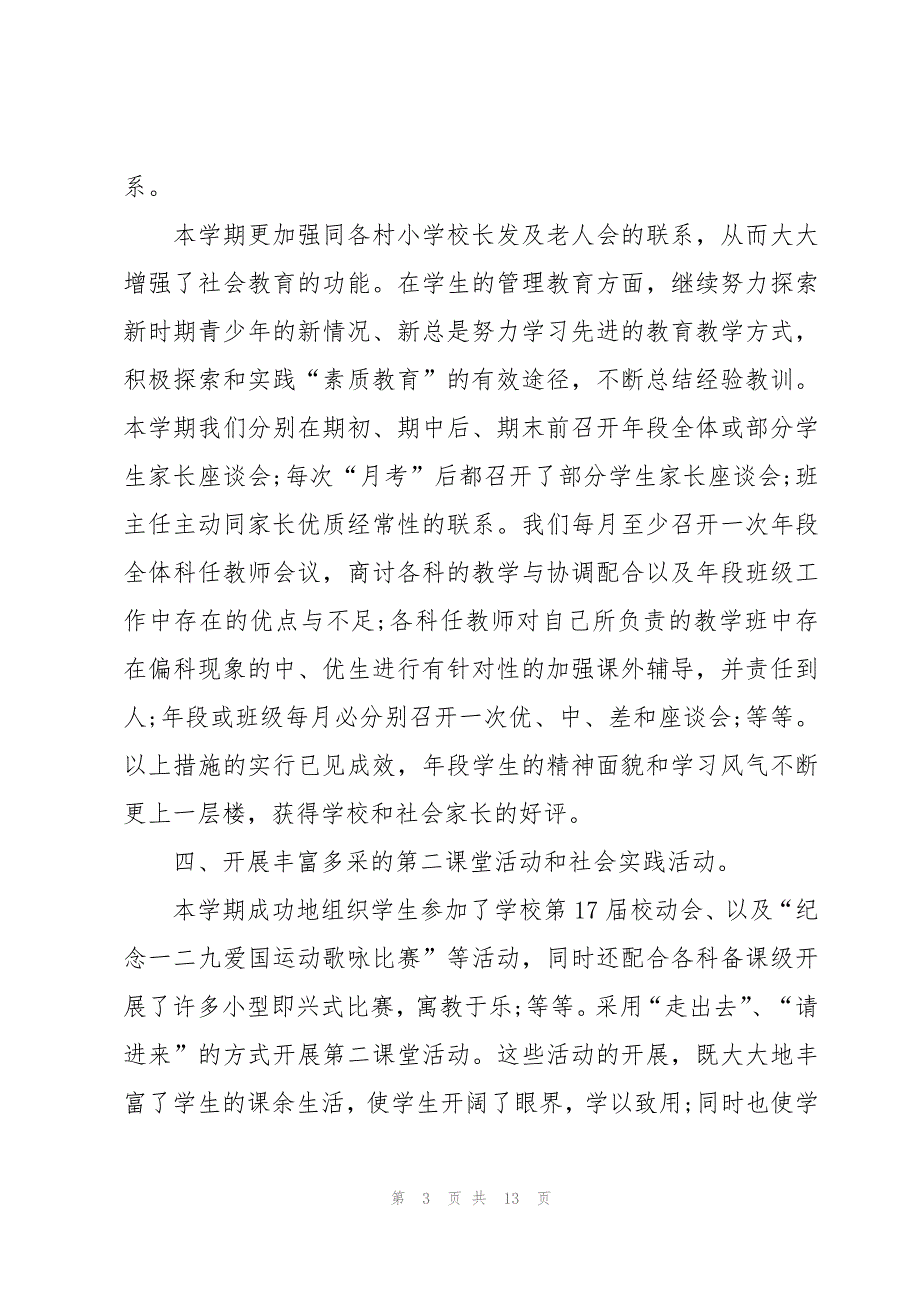 系。
本学期更加强同各村小学校长发及老人会的联系，从而大大
增强了社会教育的功能。在学生的管理教育方面，继续努力探索
新时期青少年的新情况、新总是努力学习先进的教育教学方式，
积极探索和实践“素质教育”的有效途径，不断总结经验教训。
本学期我们分别在期初、期中后、期末前召开年段全体或部分学
生家长座谈会;每次“月考”后都召开了部分学生家长座谈会;班
主任主动同家长优质经常性的联系。我们每月至少召开一次年段
全体科任教师会议，商讨各科的教学与协调配合以及年段班级工
作中存在的优点与不足;各科任教师对自己所负责的教学班中存
在偏科现象的中、优生进行有针对性的加强课外辅导，并责任到
人;年段或班级每月必分别召开一次优、中、差和座谈会;等等。
以上措施的实行已见成效，年段学生的精神面貌和学习风气不断
更上一层楼，获得学校和社会家长的好评。
四、开展丰富多采的第二课堂活动和社会实践活动。
本学期成功地组织学生参加了学校第 17 届校动会、以及“纪
念一二九爱国运动歌咏比赛”等活动，同时还配合各科备课级开
展了许多小型即兴式比赛，寓教于乐;等等。采用“走出去”、“请
进来”的方式开展第二课堂活动。这些活动的开展，既大大地丰
富了学生的课余生活，使学生开阔了眼界，学以致用;同时也使学
第 3 页 共 13 页